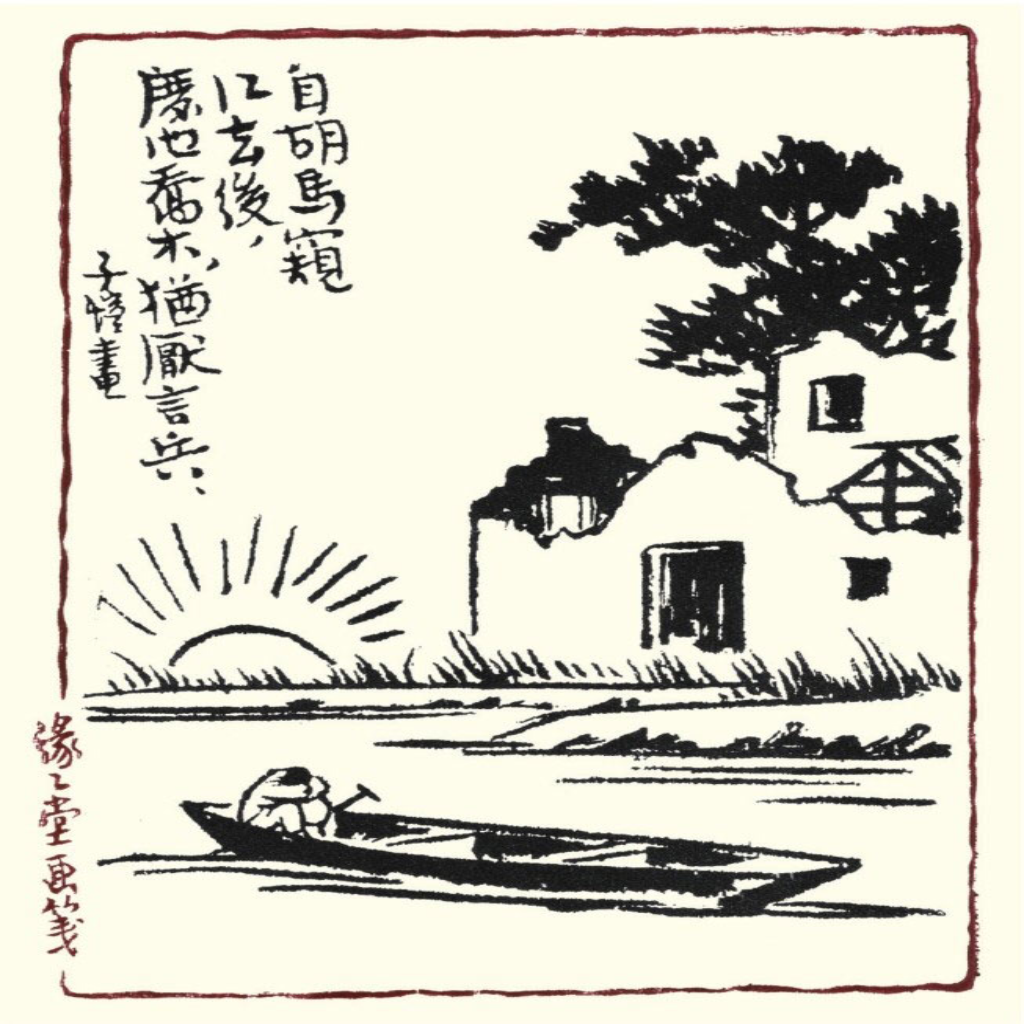 自胡馬窺
江去後，
廢池喬木，猶厭言兵、
子愷畫
緣々堂画箋